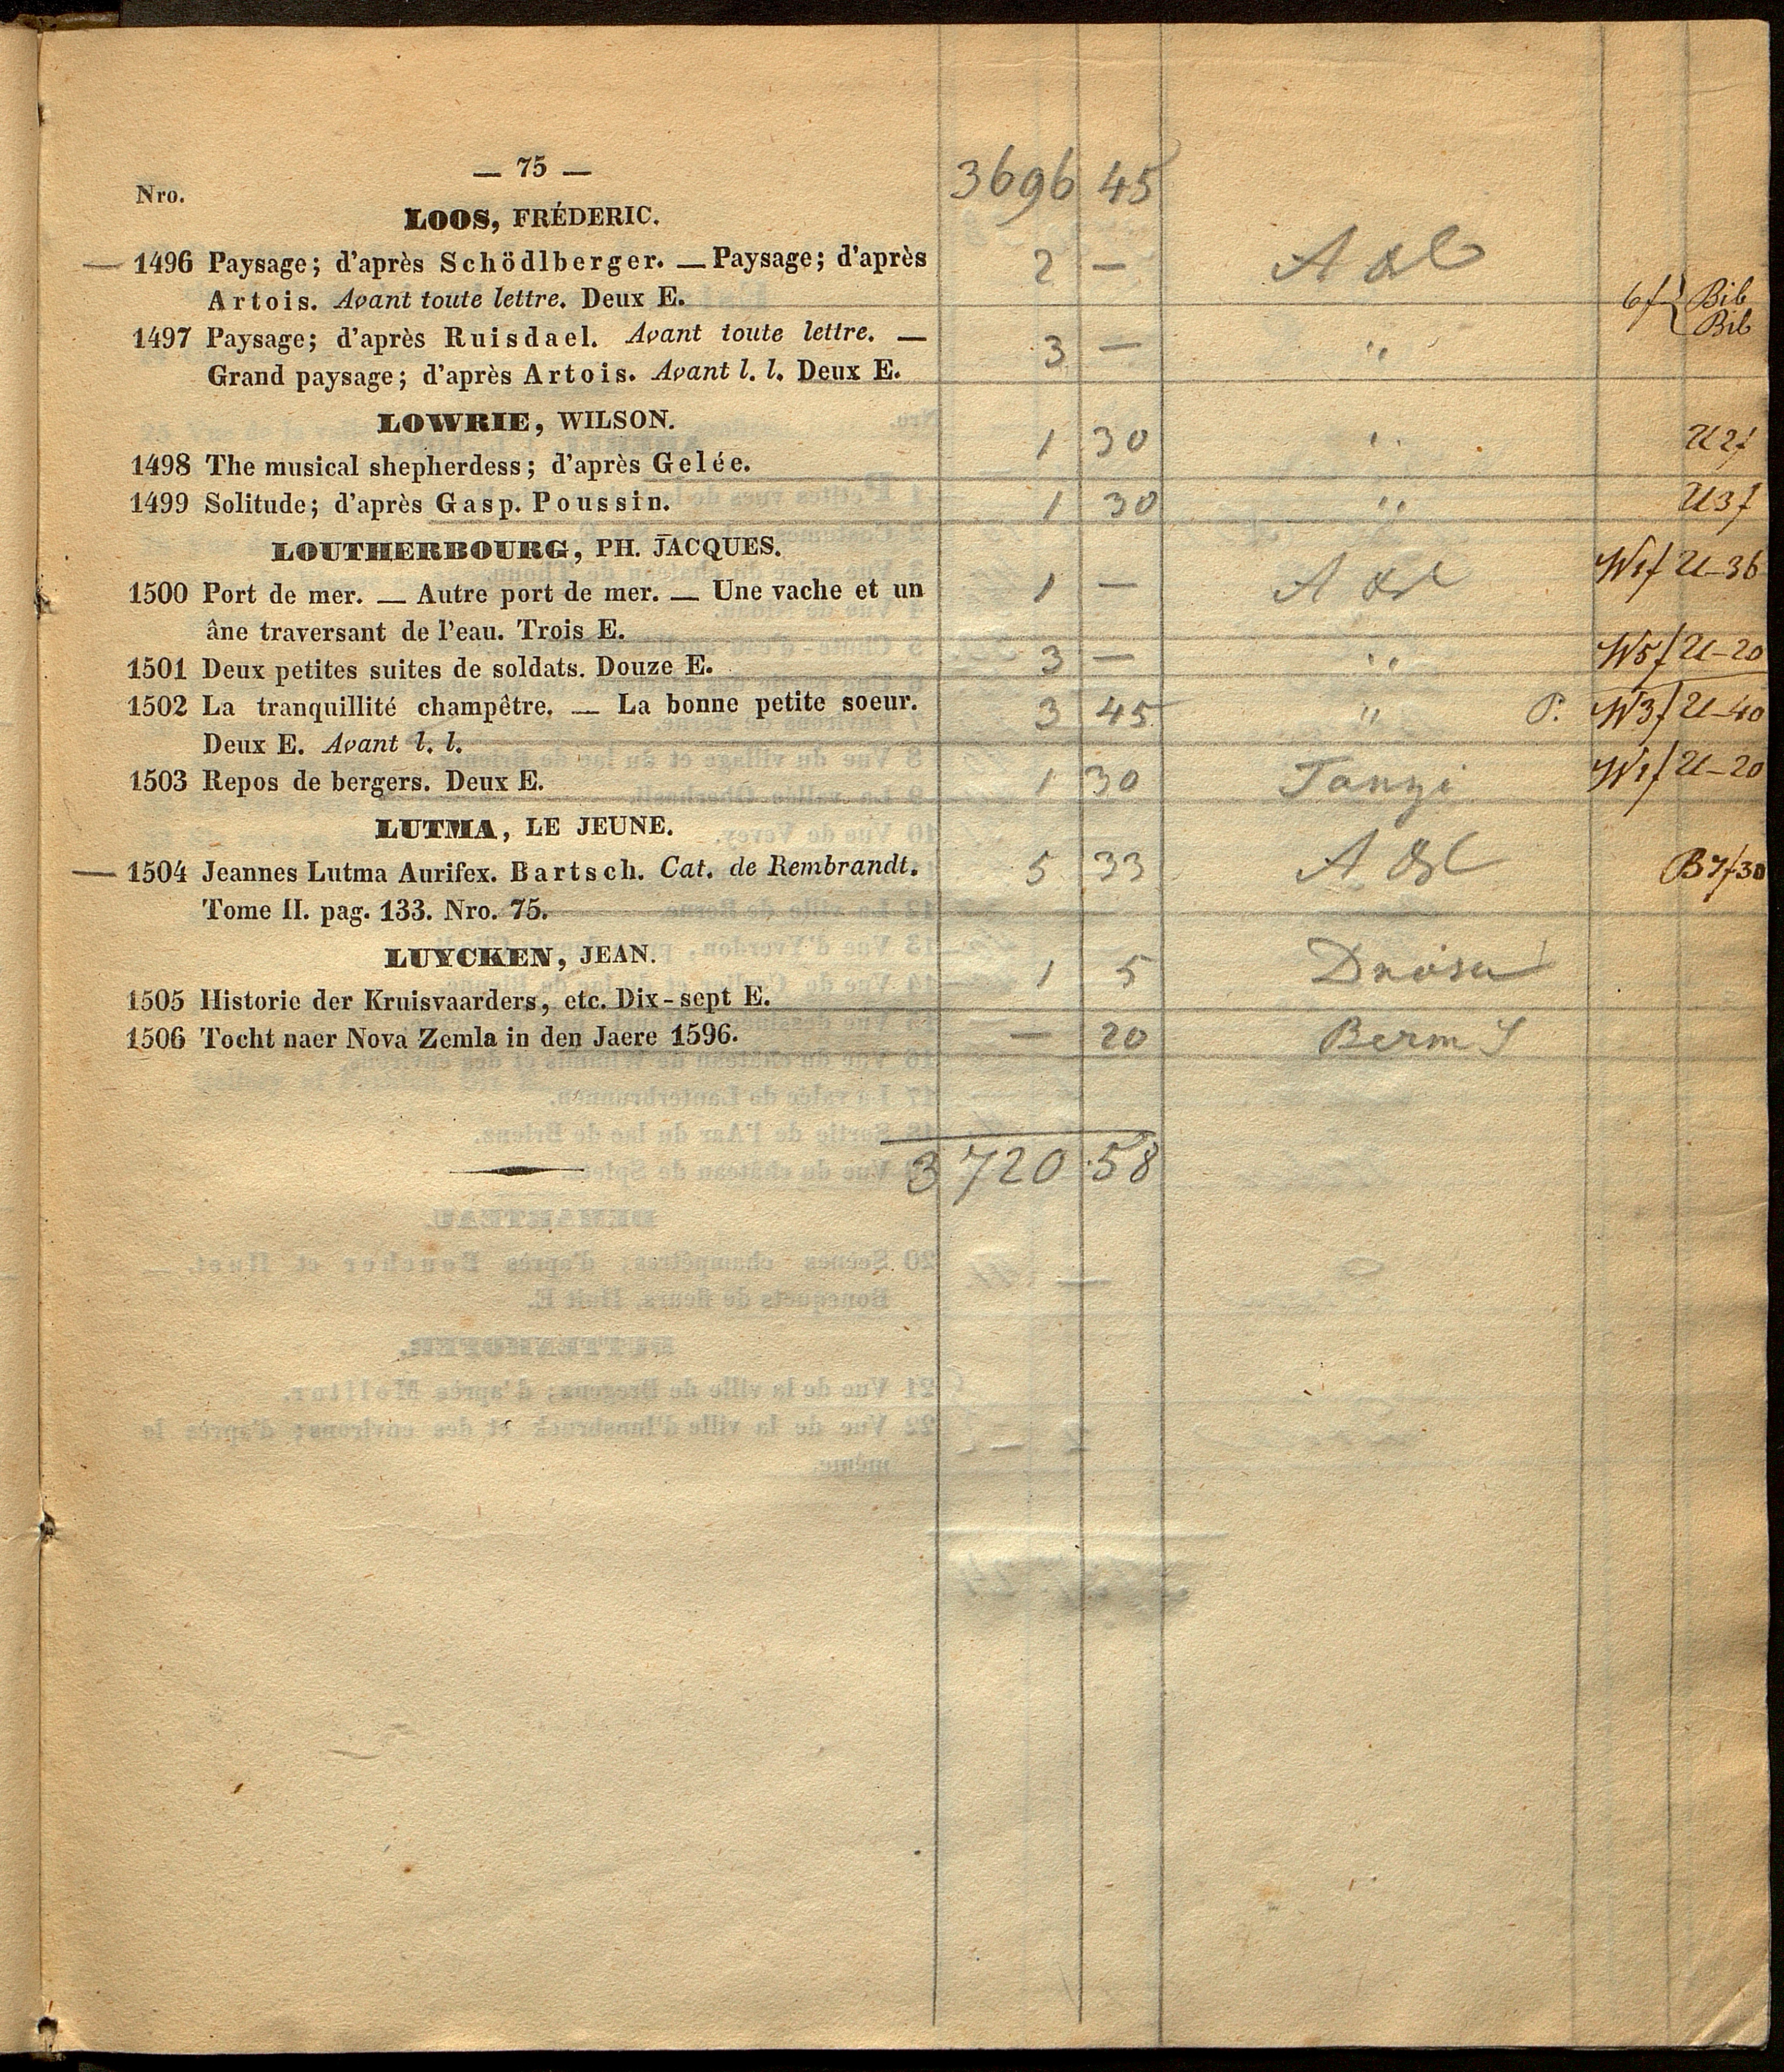 — 75 — 3696 45
Nro.
LOOS, FRÉDERIC.
— 1496 Paysage; d'après Schödlberger. — Paysage; d'après 2 —
Artois. Avant toute lettre. Deux E. 6f { Bib
Bib
1497 Paysage; d'après Ruisdael. Avant toute lettre. — 3 — "
Grand paysage; d'après Artois. Avant l. l. Deux E.
LOWRIE, WILSON.
1498 The musical shepherdess; d'après Gelée. 1 30 " U 2f
1499 Solitude; d'après Gasp. Poussin. 1 30 " U 3f
LOUTHERBOURG, PH. JACQUES.
1500 Port de mer. — Autre port de mer. — Une vache et un 1 — W1f U-36
âne traversant de l'eau. Trois E.
1501 Deux petites suites de soldats. Douze E. 3 — " W5f U-20
1502 La tranquillité champêtre. — La bonne petite soeur. 3 45 " P. W3f U-40
Deux E. Avant l. l.
1503 Repos de bergers. Deux E. 1 30 Tanzi W1f U-20
LUTMA, LE JEUNE.
— 1504 Jeannes Lutma Aurifex. Bartsch. Cat. de Rembrandt. 5 33 B7f30
Tome II. pag. 133. Nro. 75.
LUYCKEN, JEAN.
1505 Historie der Kruisvaarders, etc. Dix-sept E. 1 5
1506 Tocht naer Nova Zemla in den Jaere 1596. — 20
3720.58